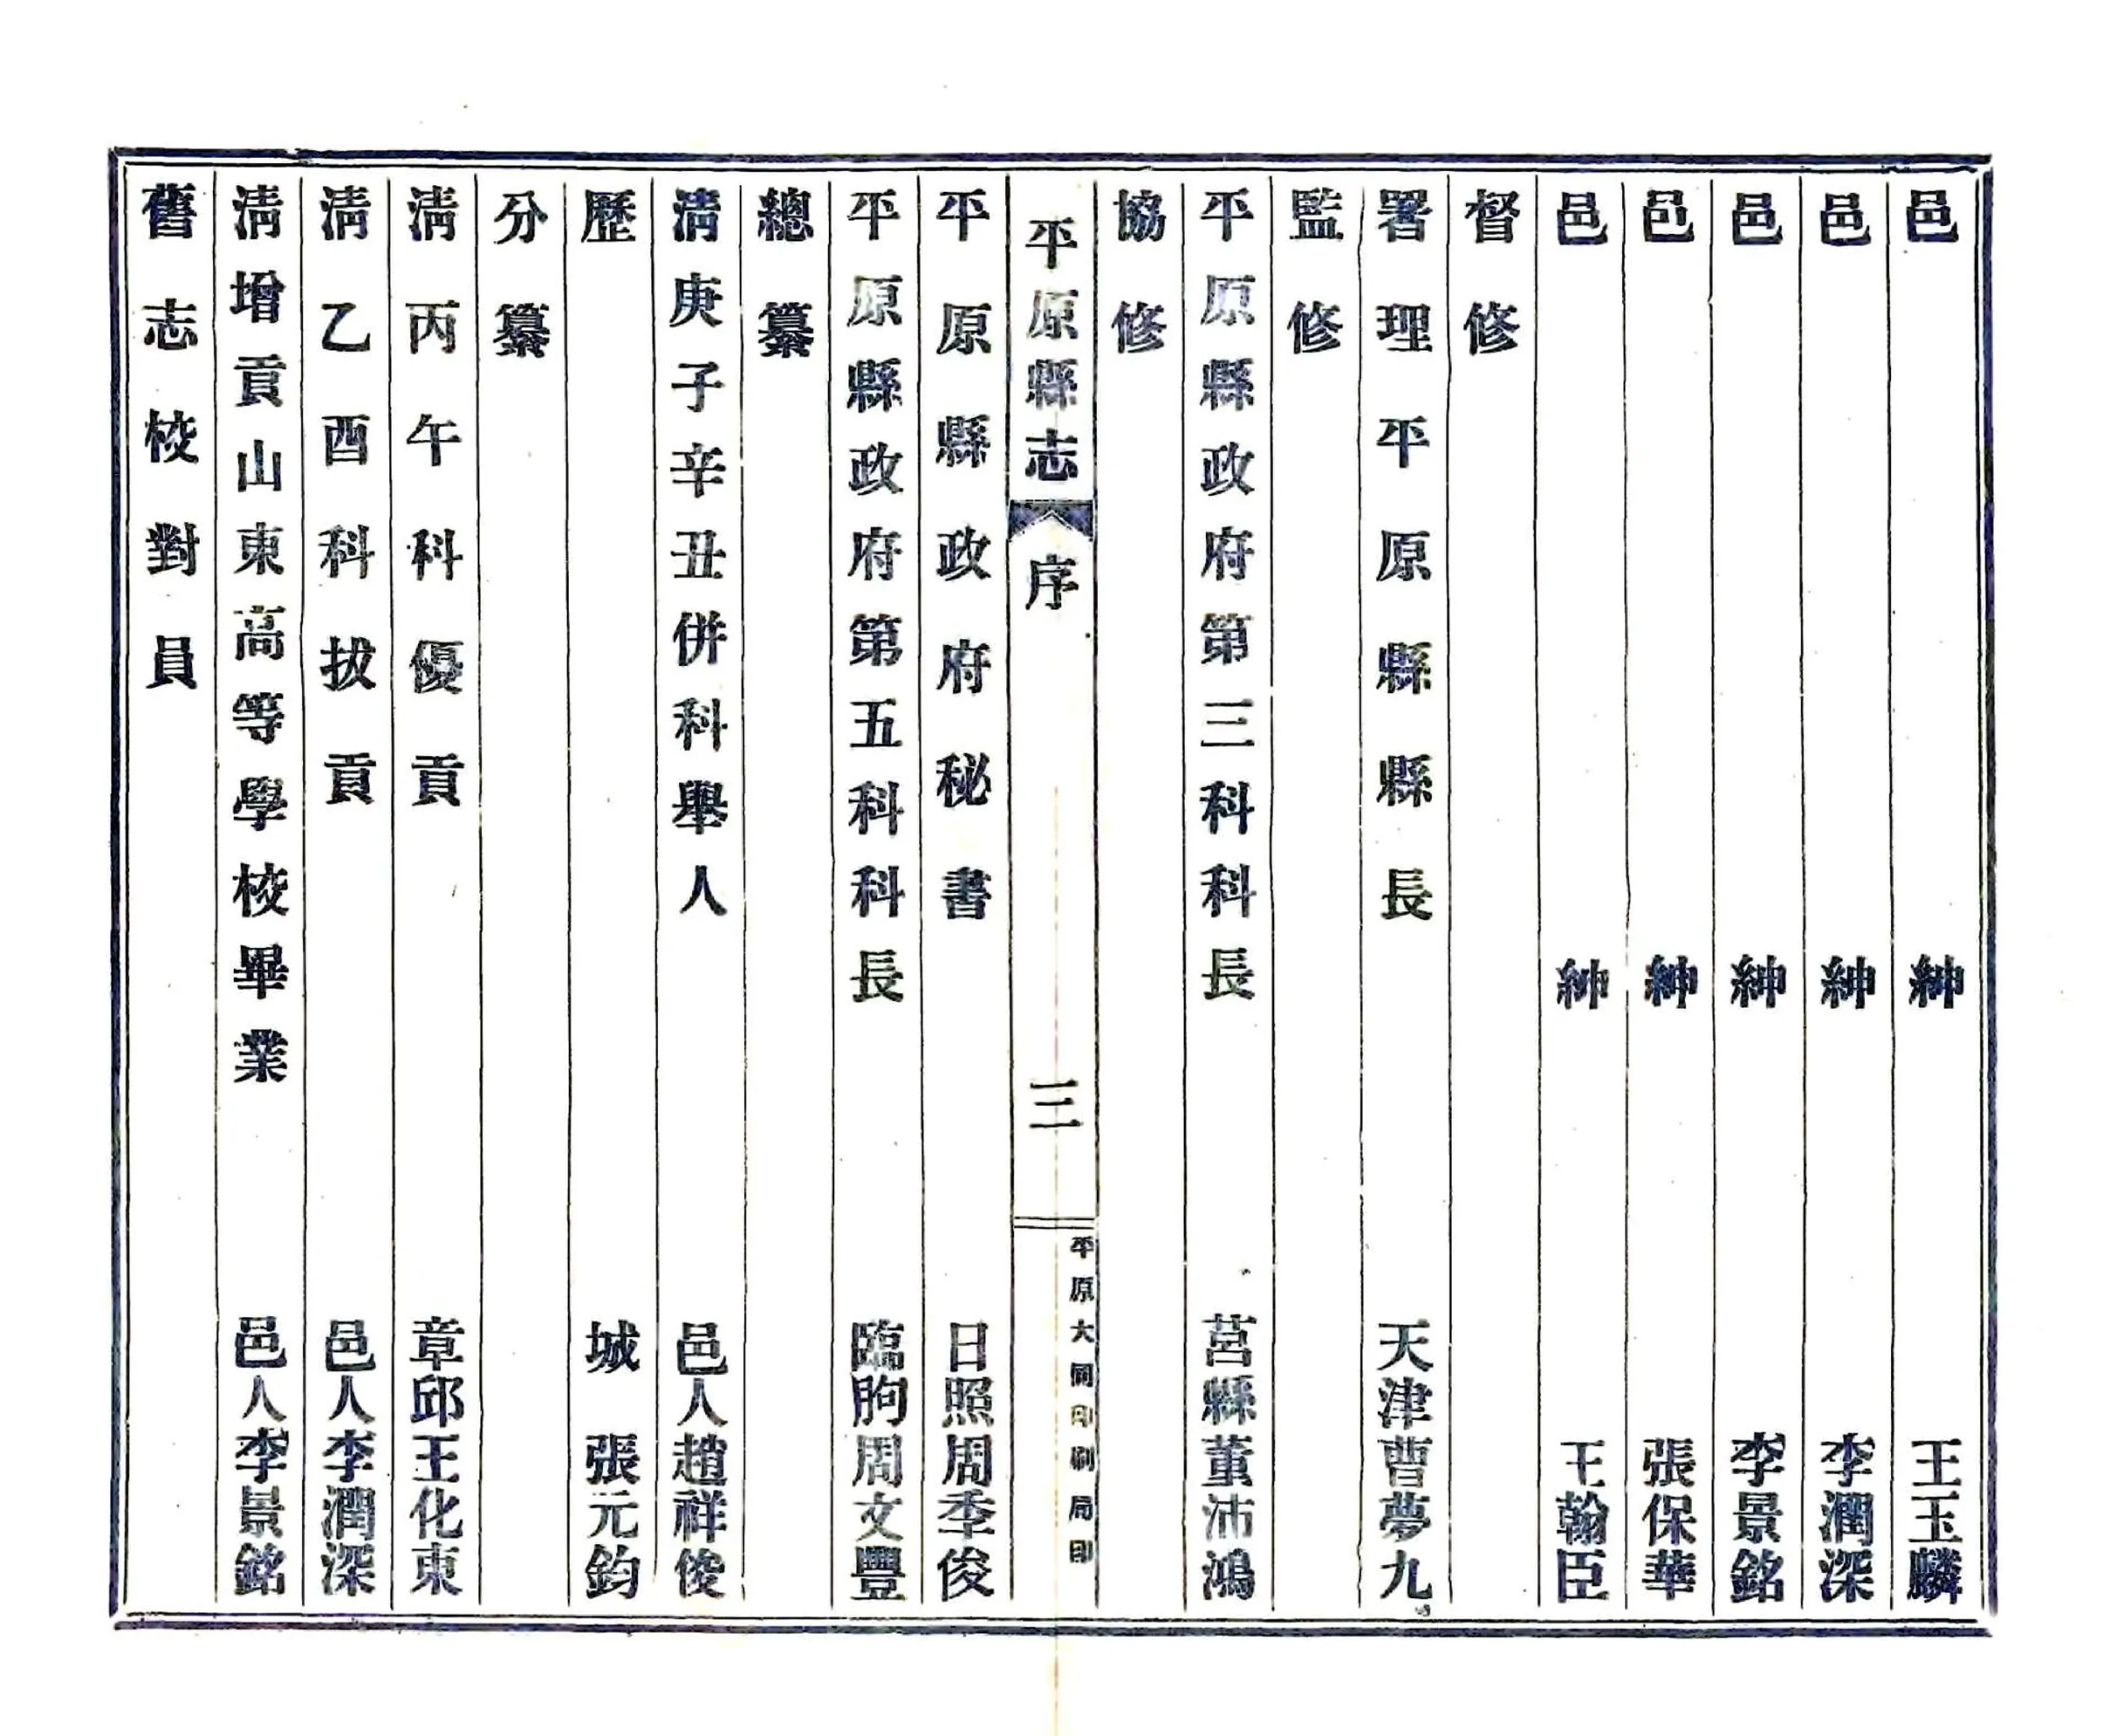 邑 紳 王玉麟
邑 紳 李潤深
邑 紳 李景銘
邑 紳 張保華
邑 紳 王翰臣
督修
署理平原縣縣長 天津曹夢九
監修
平原縣政府第三科科長 莒縣董沛鴻
協修
平原縣志 序 三 平原大同印刷局印
平原縣政府秘書 日照周季俊
平原縣政府第五科科長 臨朐周文豐
總纂
清庚子辛丑併科舉人 邑人趙祥俊
歷 城 張元鈞
分纂
清丙午科優貢 章邱王化東
清乙酉科拔貢 邑人李潤深
清增貢山東高等學校畢業 邑人李景銘
舊志校對員